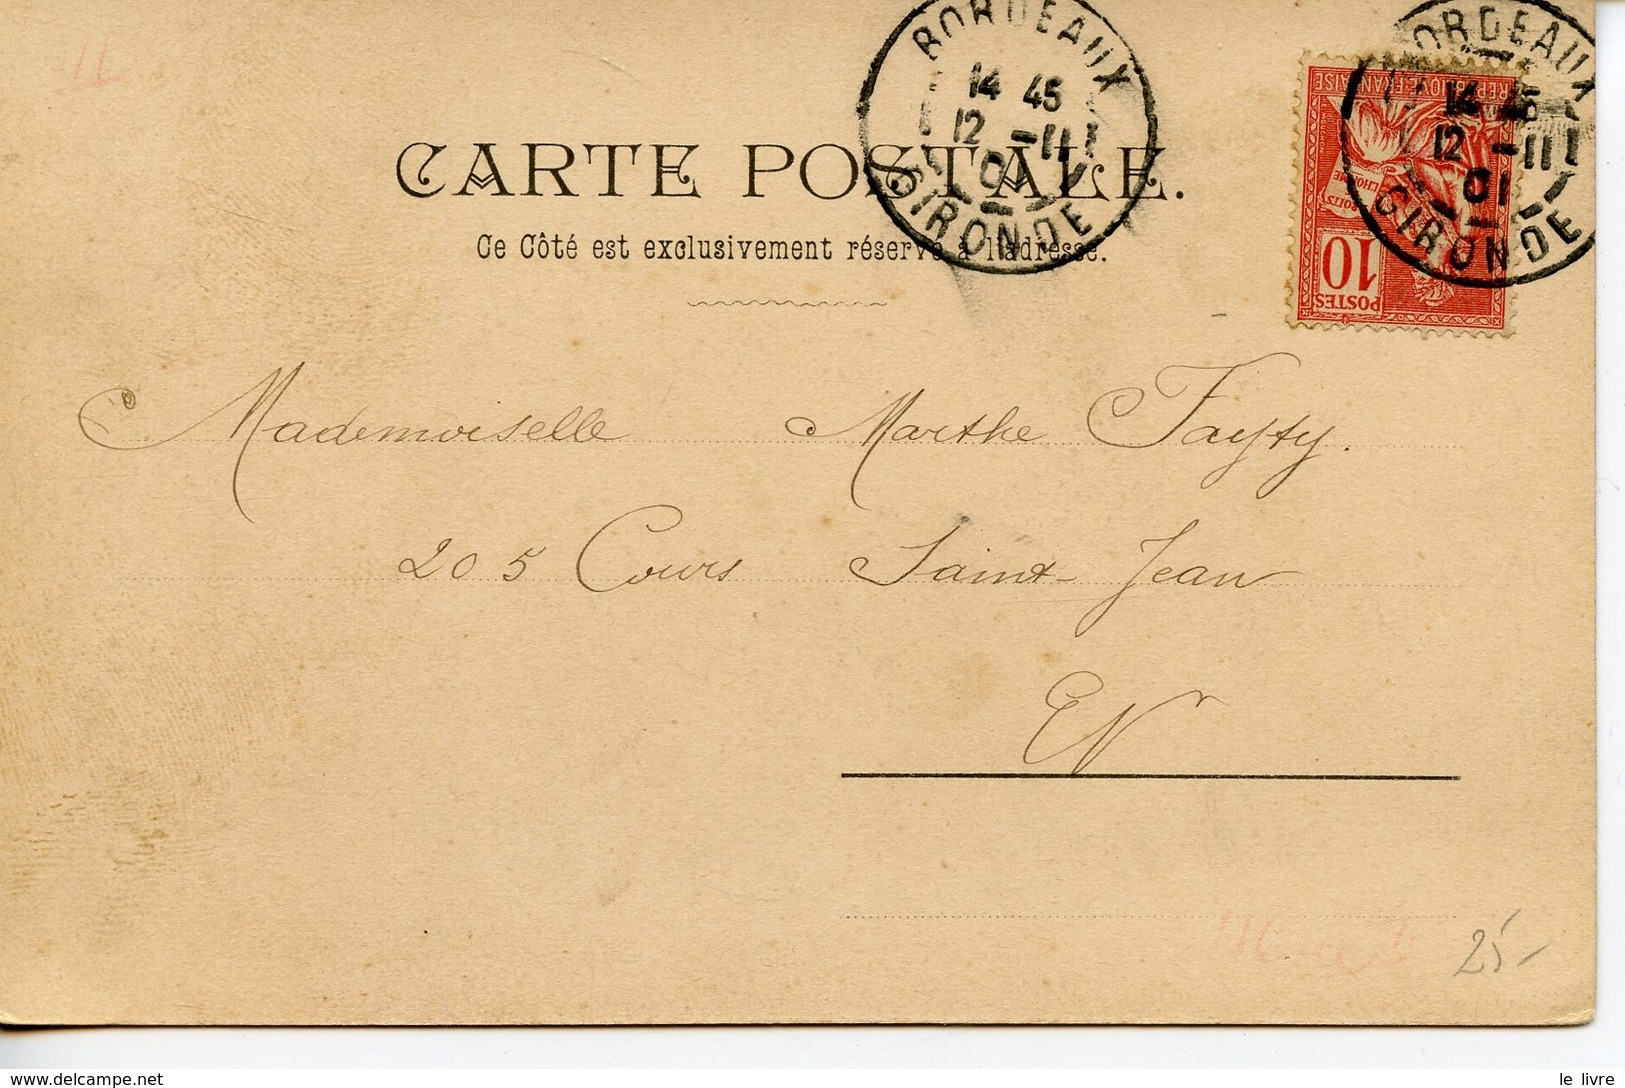 BORDEAUX
14 45
12 -11
01
GIRONDE
BORDEAUX
14 45
12 -11
01
GIRONDE
REPUBLIQUE FRANÇAISE
DROITS
L'HOMME
10
POSTES
CARTE POSTALE.
Ce Côté est exclusivement réservé à l'adresse.
Mademoiselle Marthe Faysty.
205 Cours Saint-Jean
EV
25-
www.delcampe.net
le livre